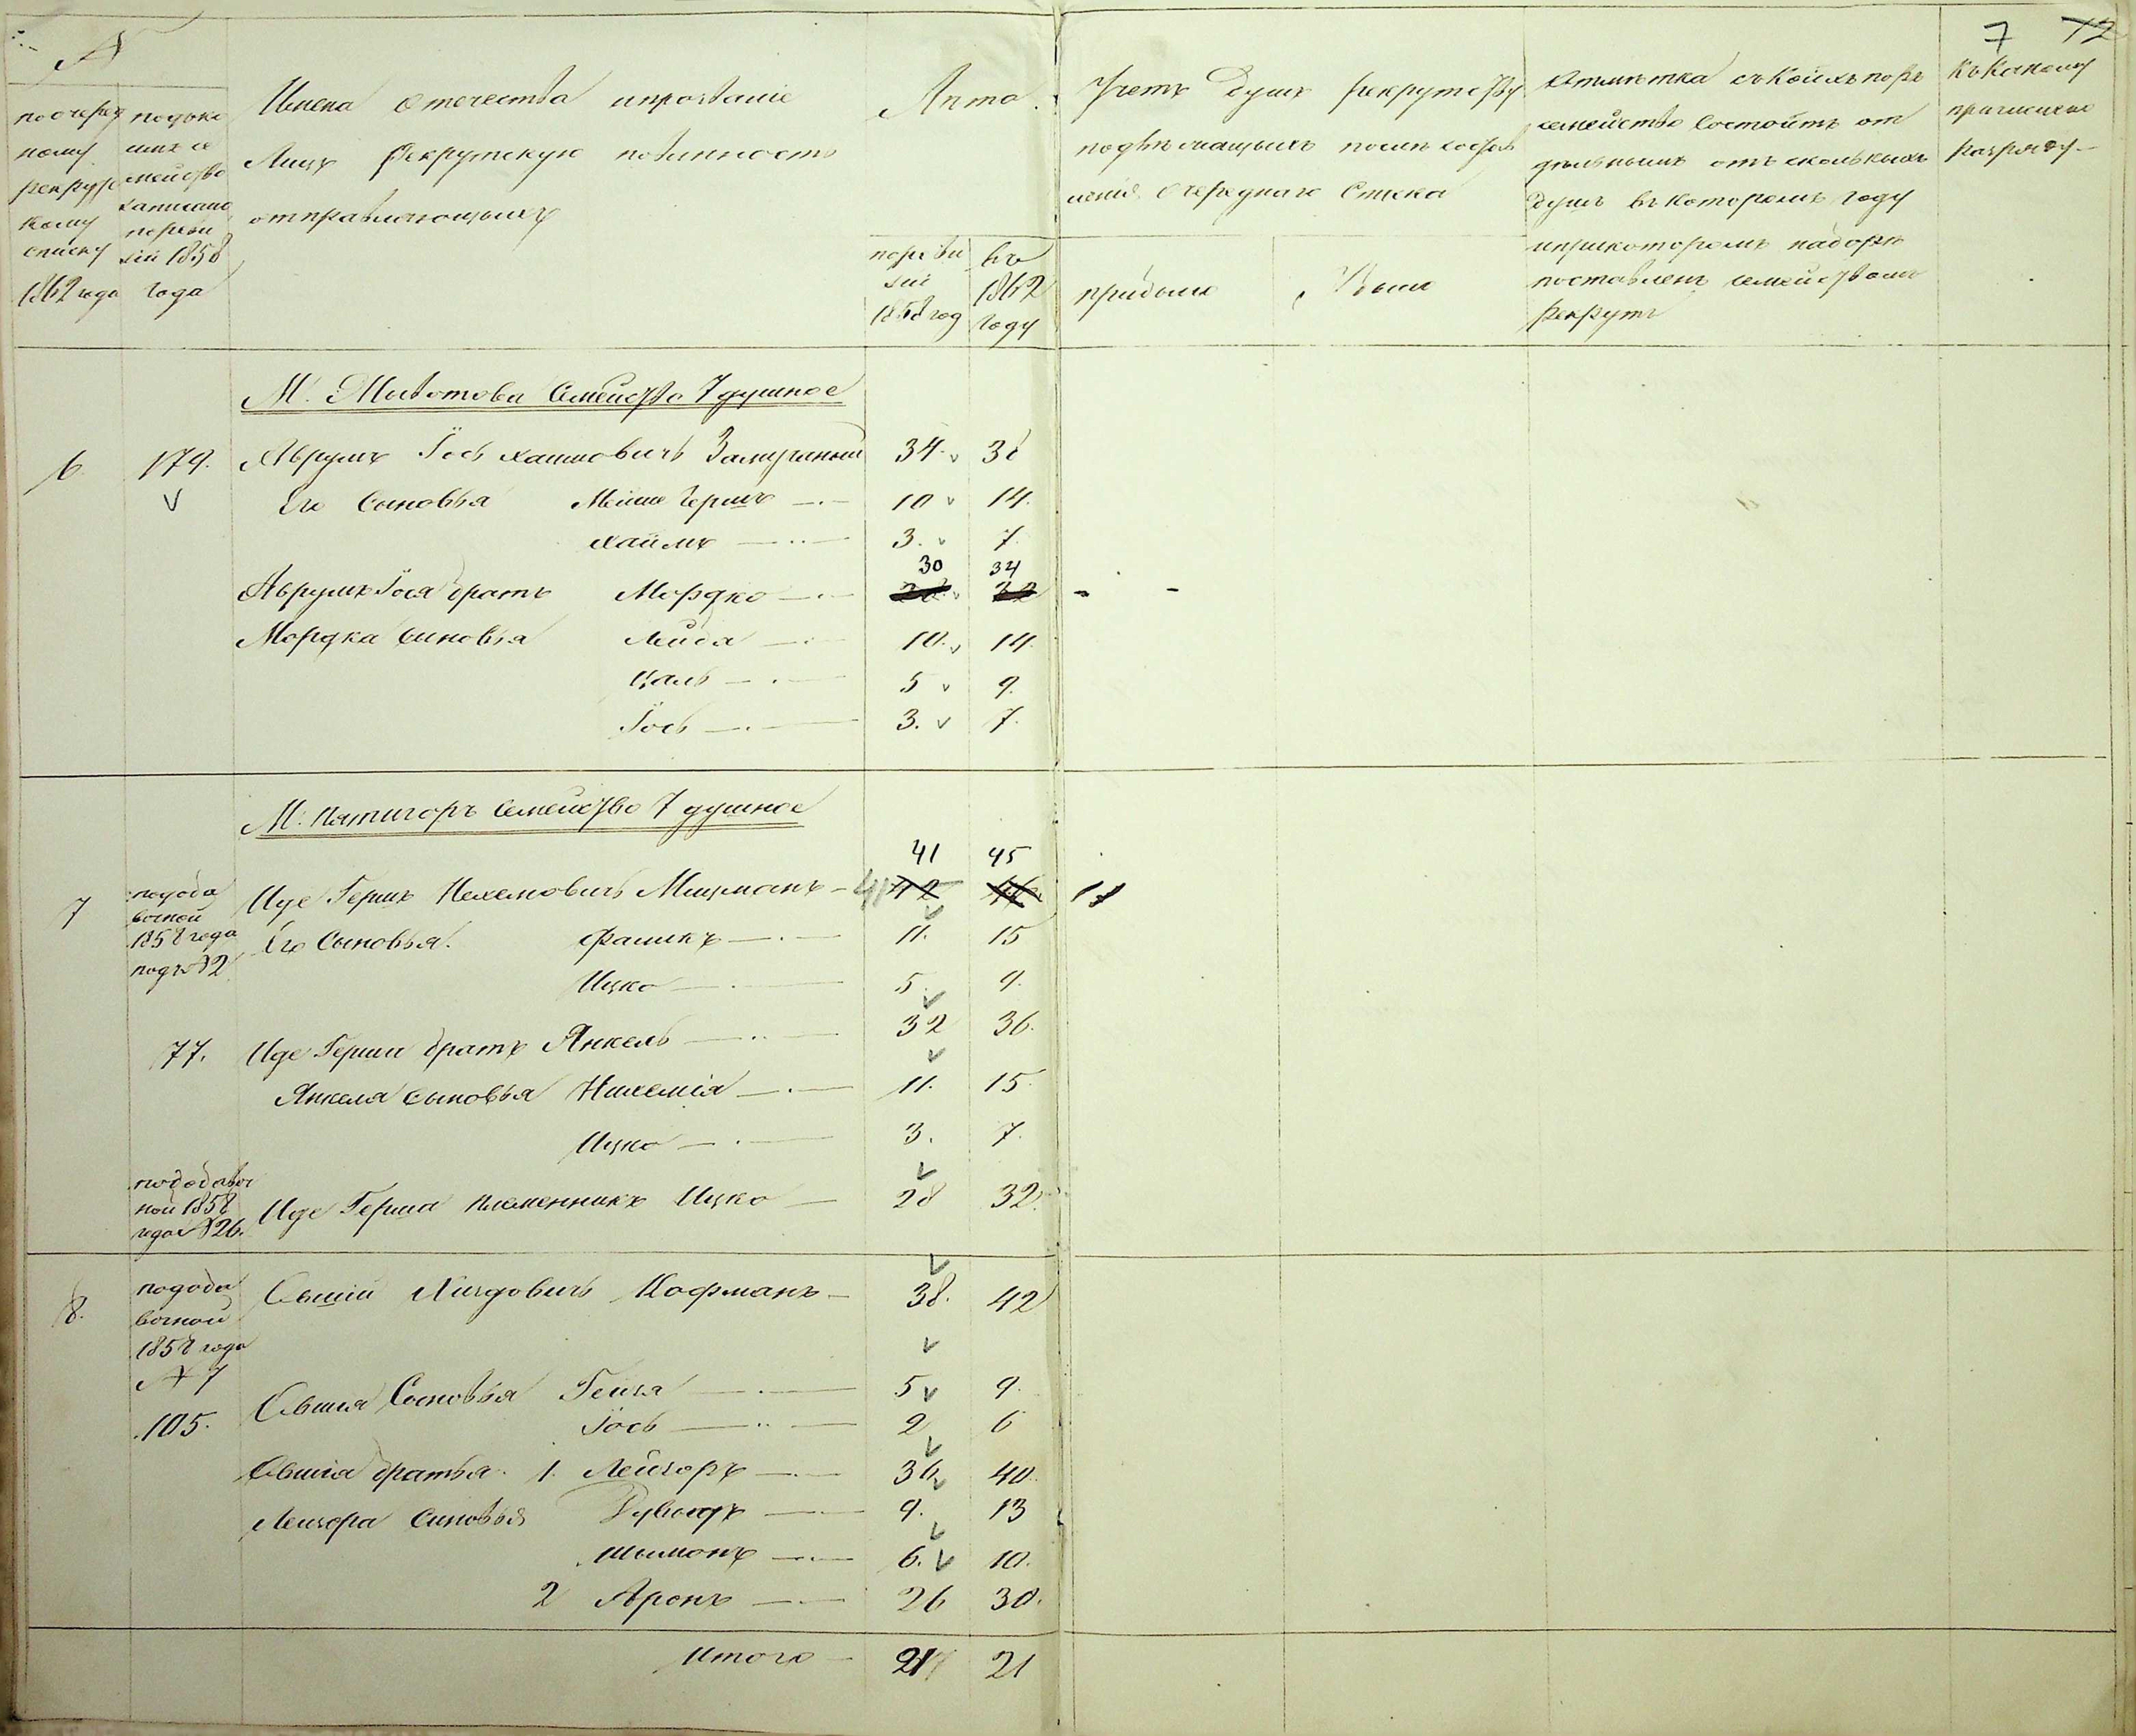 7 12
№
по очеред
ному
рекрутс
кому
списку
1862 года
семейство
записано
по реви
зіи 1858
года
Имена отечества и прозваніе
Лицъ Рекрутскую повинность
отправляющихъ
Лета.
по реви
зіи
1858 год
въ
1862
году
Учетъ Душъ рекрутству
подлежащихъ после состав
ленія очереднаго Списка
прибыло
Отметка съ коихъ поръ
семейство состоитъ от
дельнымъ отъ сколькихъ
душъ въ которомъ году
и при которомъ наборе
поставленъ семействомъ
рекрутъ
Къ какому
причислено
разряду
М. Животова Семейство 7 душное
6. 179. Аврумъ Іось Хаимовичъ 34. 38
Его Сыновья Мошко Гершъ 10 14.
Хаимъ 3. 7
30 34
Аврумъ Іося братъ Мордко
Мордка Сыновья Лейба 10. 14.
Цаль 5 9.
Іось 3. 7.
М. Пятигоръ Семейство 7 душное
41 45
7 по доба
вочной
1858 года
подъ № 2
Иде Гершъ Нехемовичъ Мицманъ 41 42 46 1
Его Сыновья. Фаликъ 11. 15
Ицко 5. 9.
77. Иде Герша братъ Янкель 32 36.
Янкеля сыновья Нихемія 11. 15.
Ицко 3. 7.
по добавоч
ной 1858
года № 26.
Иде Герша племенникъ Ицко 28 32.
8. по доба
вочной
1858 года
№ 7
105.
Овшій Кофманъ 38. 42
Овшія Сыновья 5 9.
Іось 2 6
Овшія братья 1. Лейзоръ 36 40.
Лейзора сыновья 9. 13
Шимонъ 6. 10.
2 Аронъ 26 30.
Итого 21 21